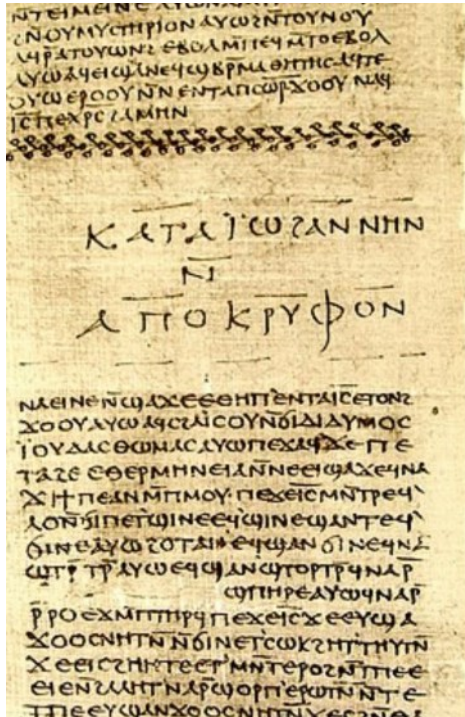 ⲛ̄ⲧⲉⲓⲙⲉⲓⲛⲉ ⲁⲩⲱ
ϩⲛ̄ⲟⲩⲙⲩⲥⲧⲏⲣⲓⲟⲛ ⲁⲩⲱ ϩⲛ̄ⲧⲟⲩⲛⲟⲩ
ⲁϥⲣ̄ⲁⲧⲟⲩⲱⲛϩ ⲉⲃⲟⲗ ⲙ̄ⲡⲉϥⲙ̄ⲧⲟ ⲉⲃⲟⲗ
ⲁⲩⲱ ⲁϥⲉⲓ ϣⲁ ⲛⲉϥϣⲃⲣ̄ⲙⲁⲑⲏⲧⲏⲥ ⲁϥⲧⲉ
ⲟⲩⲱ ⲉⲣⲟⲟⲩ ⲛ̄ⲛⲉⲛⲧⲁⲡⲥⲱⲣ̄ ϫⲟⲟⲩ ⲛⲁϥ
ⲓ̅ⲥ̅ ⲡⲉⲭⲣ̅ⲥ̅ ϩⲁⲙⲏⲛ
ⲕⲁⲧⲁ ⲓ̈ⲱϩⲁⲛⲛⲏⲛ
ⲛ̄
ⲁⲡⲟⲕⲣⲩⲫⲟⲛ
ⲛⲁⲉⲓ ⲛⲉ ⲛ̄ϣⲁϫⲉ ⲉⲑⲏⲡ ⲉⲛⲧⲁⲓ̅ⲥ̅ ⲉⲧⲟⲛϩ
ϫⲟⲟⲩ ⲁⲩⲱ ⲁϥⲥϩⲁⲓ̈ⲥⲟⲩ ⲛ̄ϭⲓ ⲇⲓⲇⲩⲙⲟⲥ
ⲓ̈ⲟⲩⲇⲁⲥ ⲑⲱⲙⲁⲥ ⲁⲩⲱ ⲡⲉϫⲁϥ ϫⲉ ⲡⲉ
ⲧⲁϩⲉ ⲉⲑⲉⲣⲙⲏⲛⲉⲓⲁ ⲛ̄ⲛⲉⲉⲓϣⲁϫⲉ ϥⲛⲁ
ϫⲓ ϯⲡⲉ ⲁⲛ ⲙ̄ⲡⲙⲟⲩ ⲡⲉϫⲉ ⲓ̅ⲥ̅ ⲙⲛ̄ⲧⲣⲉϥ
ⲗⲟ ⲛ̄ϭⲓ ⲡⲉⲧϣⲓⲛⲉ ⲉϥϣⲓⲛⲉ ϣⲁⲛⲧⲉϥ
ϭⲓⲛⲉ ⲁⲩⲱ ϩⲟⲧⲁⲛ ⲉϥϣⲁⲛϭⲓⲛⲉ ϥⲛⲁ
ϣⲧⲣ̄ⲧⲣ̄ ⲁⲩⲱ ⲉϥϣⲁⲛϣⲧⲟⲣⲧⲣ̄ ϥⲛⲁⲣ̄
ϣⲡⲏⲣⲉ ⲁⲩⲱ ϥⲛⲁⲣ̄
ⲣ̄ⲣⲟ ⲉϫⲙ̄ ⲡⲧⲏⲣϥ ⲡⲉϫⲉ ⲓ̅ⲥ̅ ϫⲉ ⲉⲩϣⲁ
ϫⲟⲟⲥ ⲛⲏⲧⲛ̄ ⲛ̄ϭⲓ ⲛⲉⲧⲥⲱⲕ ϩⲏⲧ ⲑⲏⲩⲧⲛ̄
ϫⲉ ⲉⲓⲥϩⲏⲏⲧⲉ ⲉⲧⲙⲛ̄ⲧⲉⲣⲟ ϩⲛ̄ ⲧⲡⲉ ⲉ
ⲉⲓⲉ ⲛ̄ϩⲁⲗⲏⲧ ⲛⲁⲣ̄ ϣⲟⲣⲡ ⲉⲣⲱⲧⲛ̄ ⲛ̄ⲧⲉ
ⲧⲡⲉ ⲉⲩϣⲁⲛϫⲟⲟⲥ ⲛⲏⲧⲛ̄ ϫⲉ ⲥϩⲛ̄ ⲑⲁ